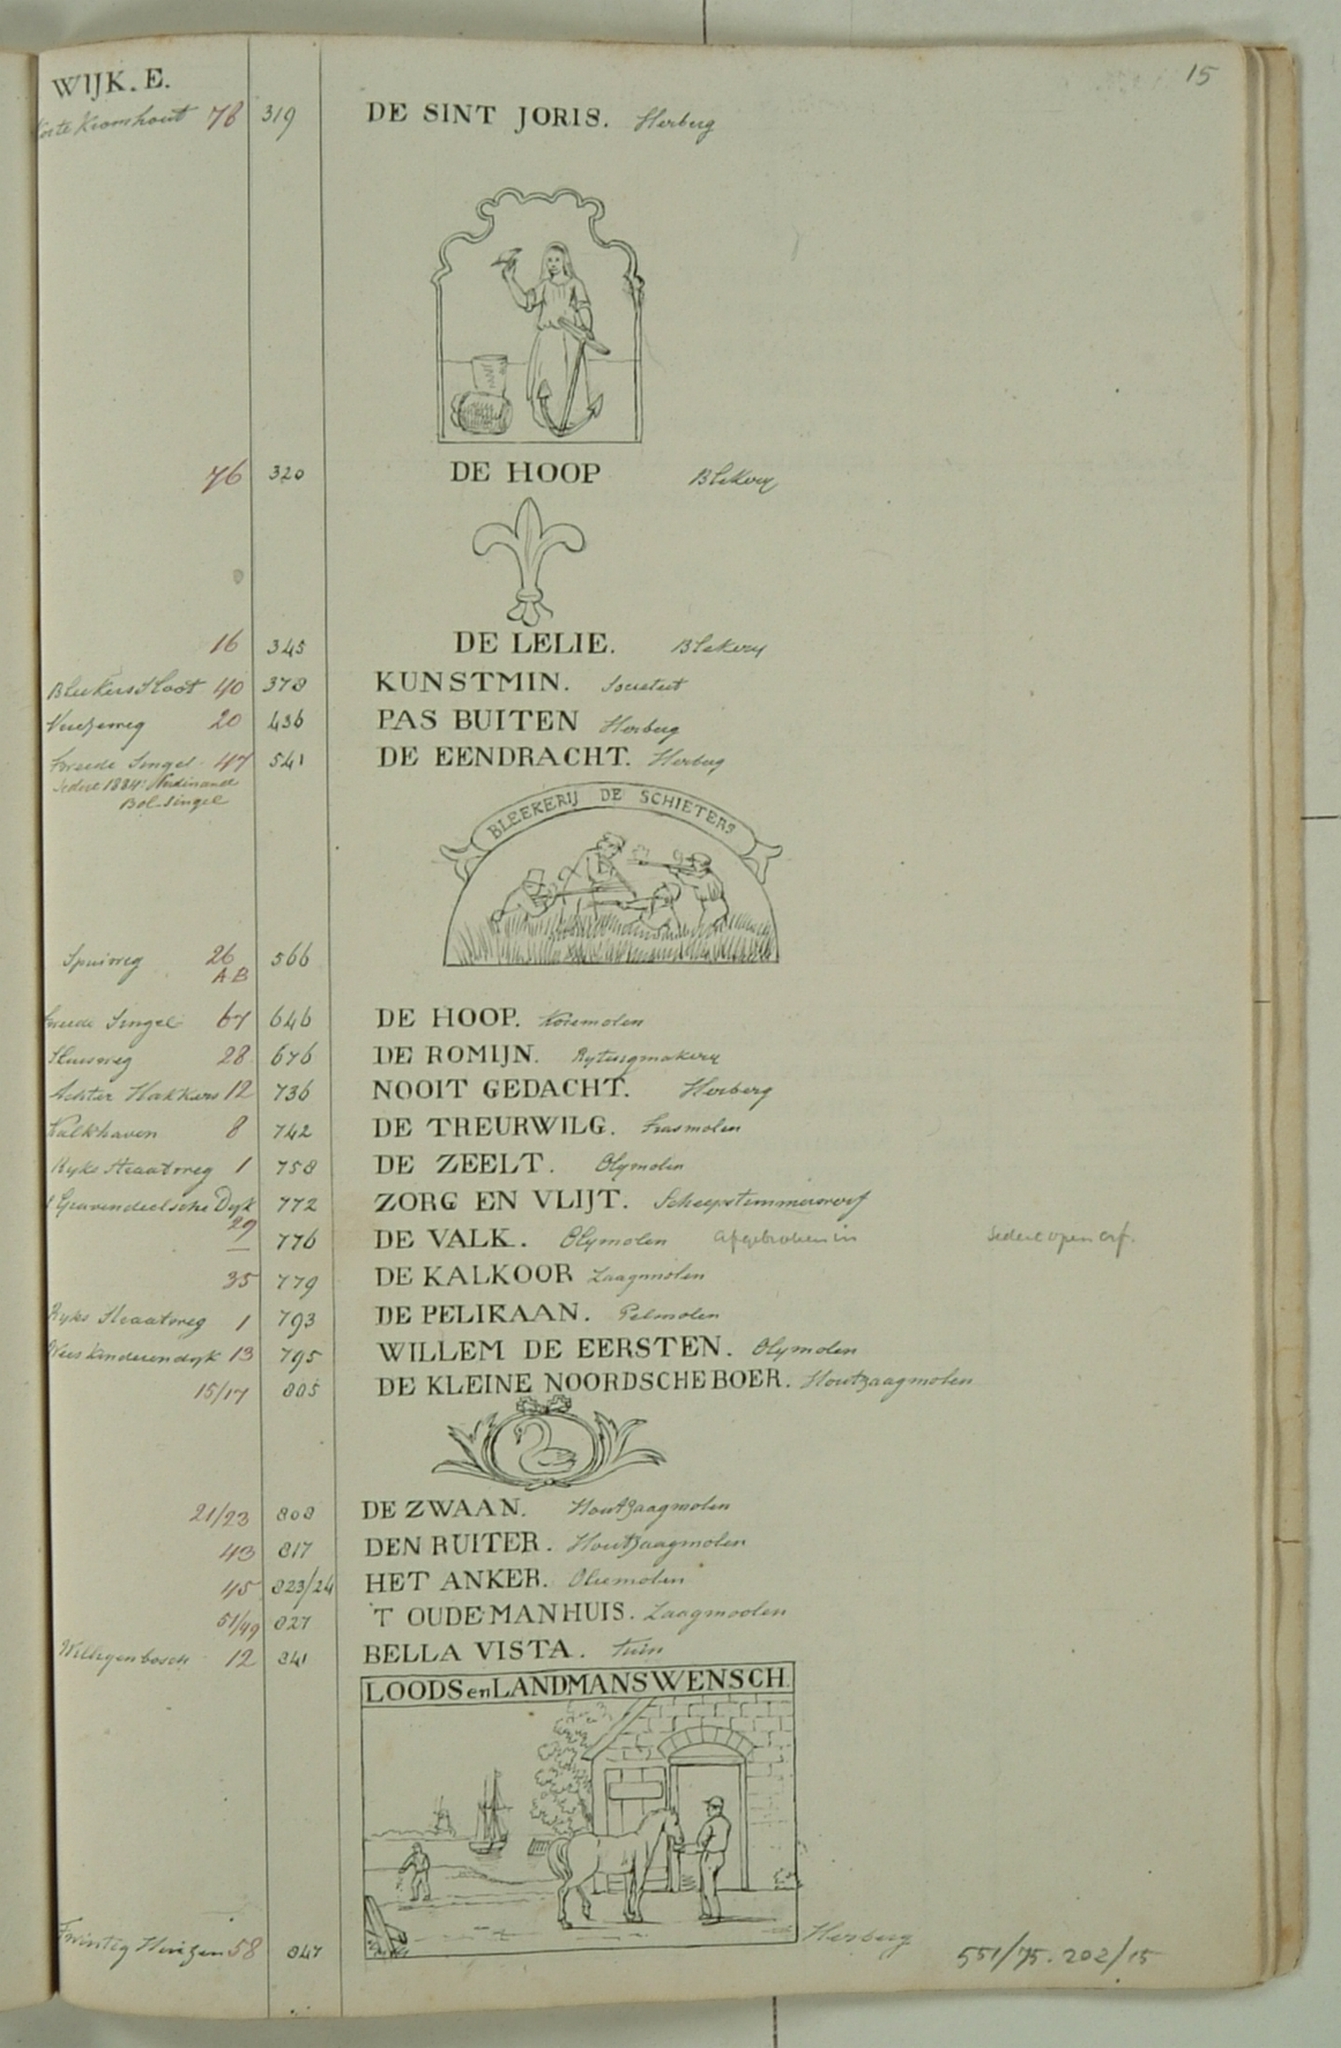 15
WIJK. E.
Korte Kromhout 78 319 DE SINT JORIS. Herberg
76 320 DE HOOP Blekery
16 345 DE LELIE. Blekery
Bleekers Sloot 40 378 KUNSTMIN. Societeit
20 436 PAS BUITEN Herberg
Tweede Singel 47 541 DE EENDRACHT. Herberg
sedert 1884: Ferdinand
Bol-Singel
BLEEKERIJ DE SCHIETERS
Spuiweg 26 566
A.B
Tweede Singel 67 646 DE HOOP. Koremolen
28 676 DE ROMIJN. Rytuigmakery
Achter Hakkers 12 736 NOOIT GEDACHT. Herberg
Kalkhaven 8 742 DE TREURWILG. Trasmolen
Ryks Straatweg 1 758 DE ZEELT. Olymolen
's Gravendeelsche Dyk 772 ZORG EN VLIJT. Scheepstimmerwerf
29
776 DE VALK. Olymolen afgebroken in sedert open erf.
35 779 DE KALKOOR Zaagmolen
Ryks Straatweg 1 793 DE PELIKAAN. Pelmolen
Weeskinderendyk 13 795 WILLEM DE EERSTEN. Olymolen
15/17 805 DE KLEINE NOORDSCHE BOER. Houtzaagmolen
21/23 808 DE ZWAAN. Houtzaagmolen
43 817 DEN RUITER. Houtzaagmolen
45 823/24 HET ANKER. Oliemolen
51/49 827 'T OUDE MANHUIS. Zaagmoolen
Willigenbosch 12 841 BELLA VISTA. tuin
LOODS en LANDMANS WENSCH.
Twintig Huizen 58 847 Herberg
551/75.202/15